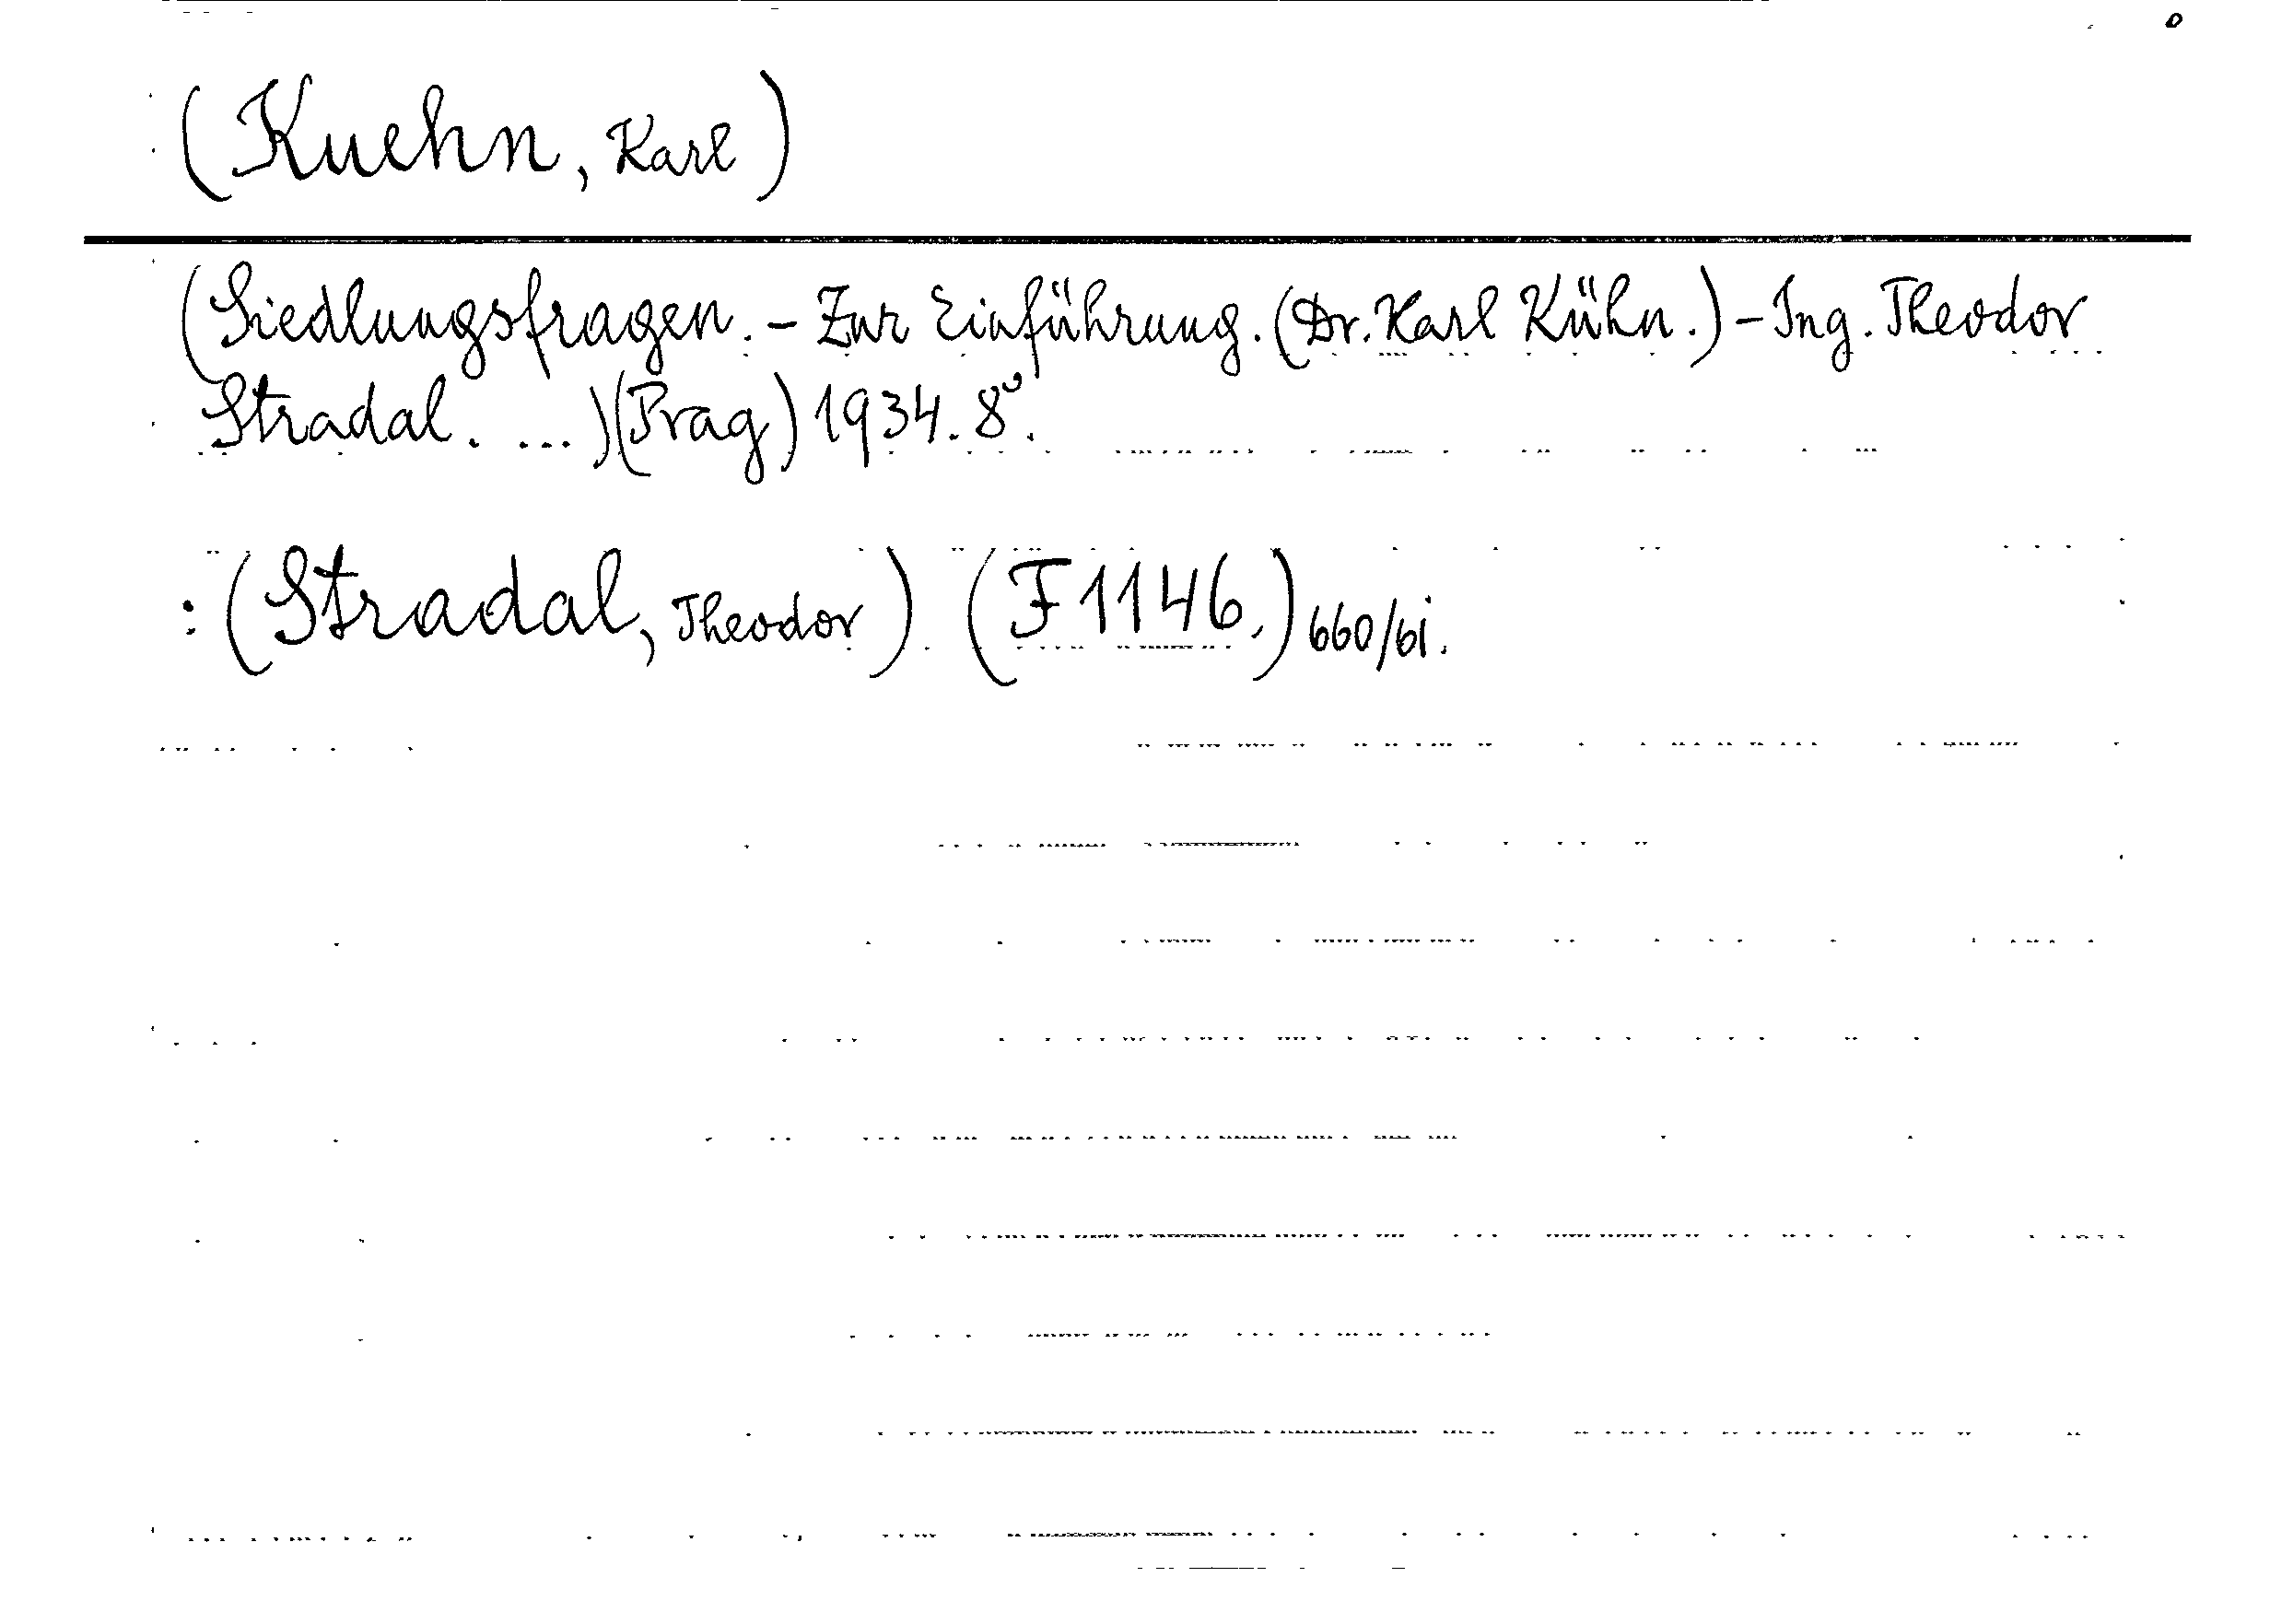 (Kuehn, Karl)
(Siedlungsfragen. - Zur Einführung. (Dr. Karl Kühn.) - Ing. Theodor
Stradal. ...) (Prag) 1934. 8°.
: (Stradal, Theodor) (F 1146.) 660/61.